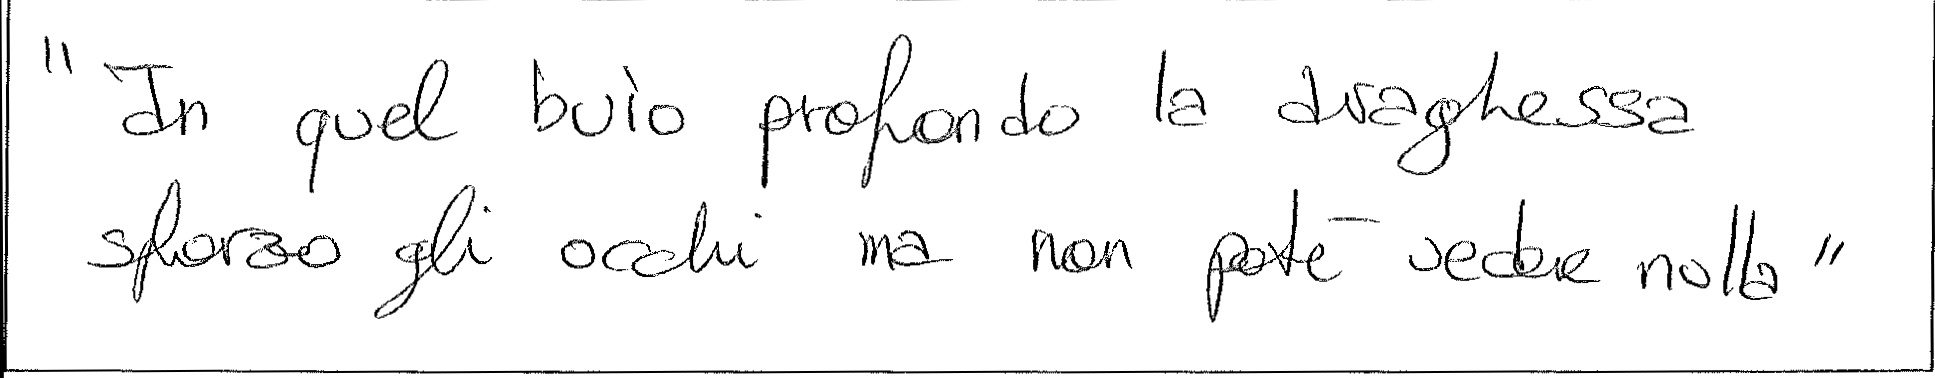 "In quel buio profondo la draghessa
sforzo gli occhi ma non poté vedere nulla"